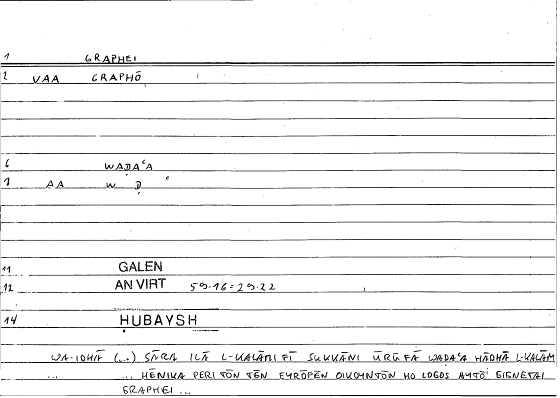 1 GRAPHEI
2 VAA GRAPHŌ
6 WAḌAʿA
7 AA W Ḍ ʿ
11 GALEN
12 AN VIRT 59.16=29.22
14 ḤUBAYSH
WA-IDHĀ (...) ṢĀRA ILĀ L-KALĀMI FĪ SUKKĀNI ŪRŪFĀ WAḌAʿA HĀDHĀ L-KALĀM
... ... HĒNIKA PERI TŌN TĒN EYRŌPĒN OIKOYNTŌN HO LOGOS AYTŌ GIGNETAI
GRAPHEI ...